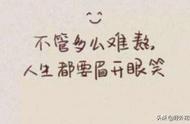 不管多么难熬，
人生都要眉开眼笑